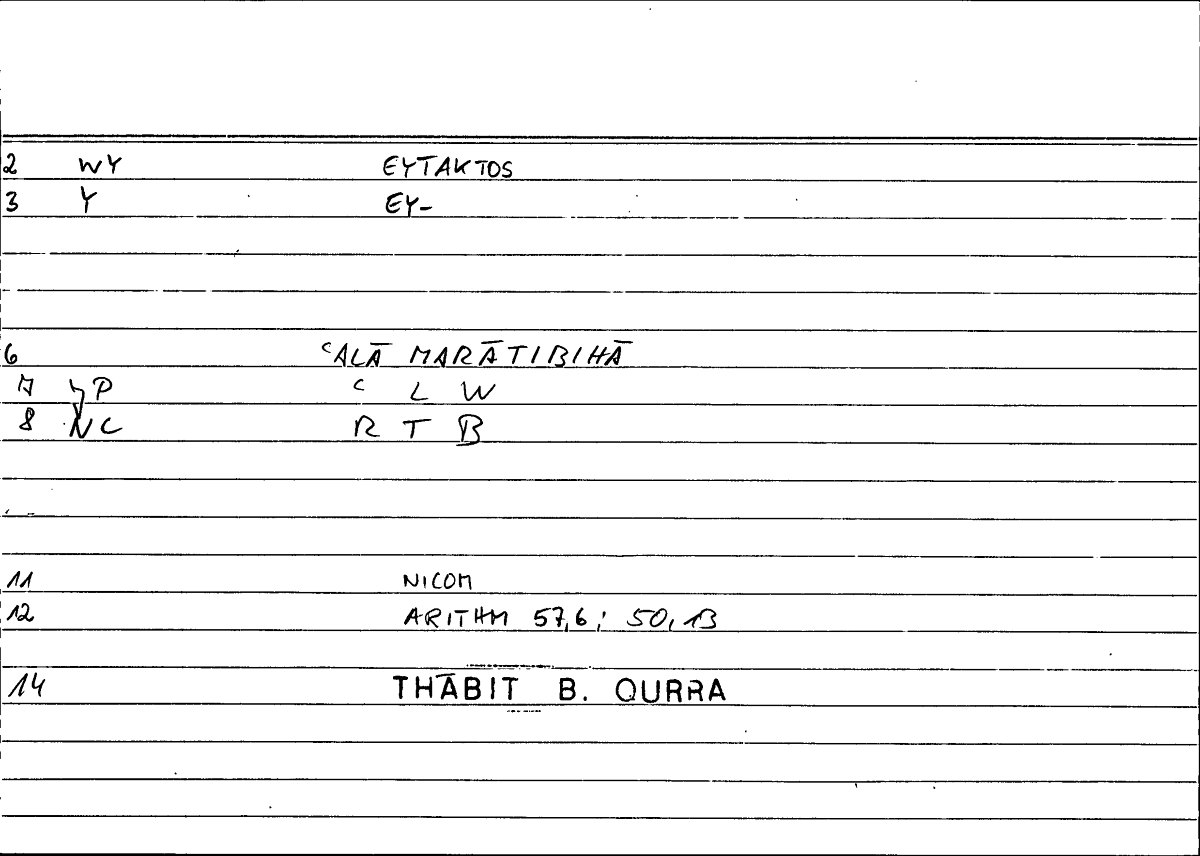 2 WY EYTAKTOS
3 Y EY-
6 ʿALĀ MARĀTIBIHĀ
7 P ʿ L W
8 NC R T B
11 NICOM
12 ARITHM 57,6; 50,13
14 THĀBIT B. QURRA